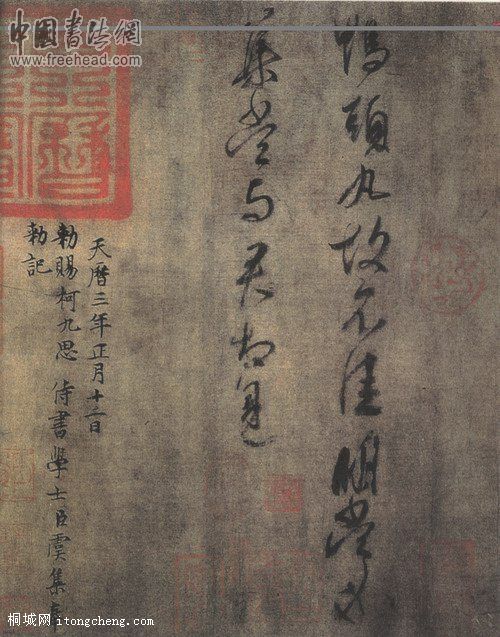 中國書法網
www.freehead.com
鴨頭丸故不佳明當必
集當与君相見
天曆三年正月十二日
勑賜柯九思 侍書學士臣虞集奉
勑記
桐城网 itongcheng.com